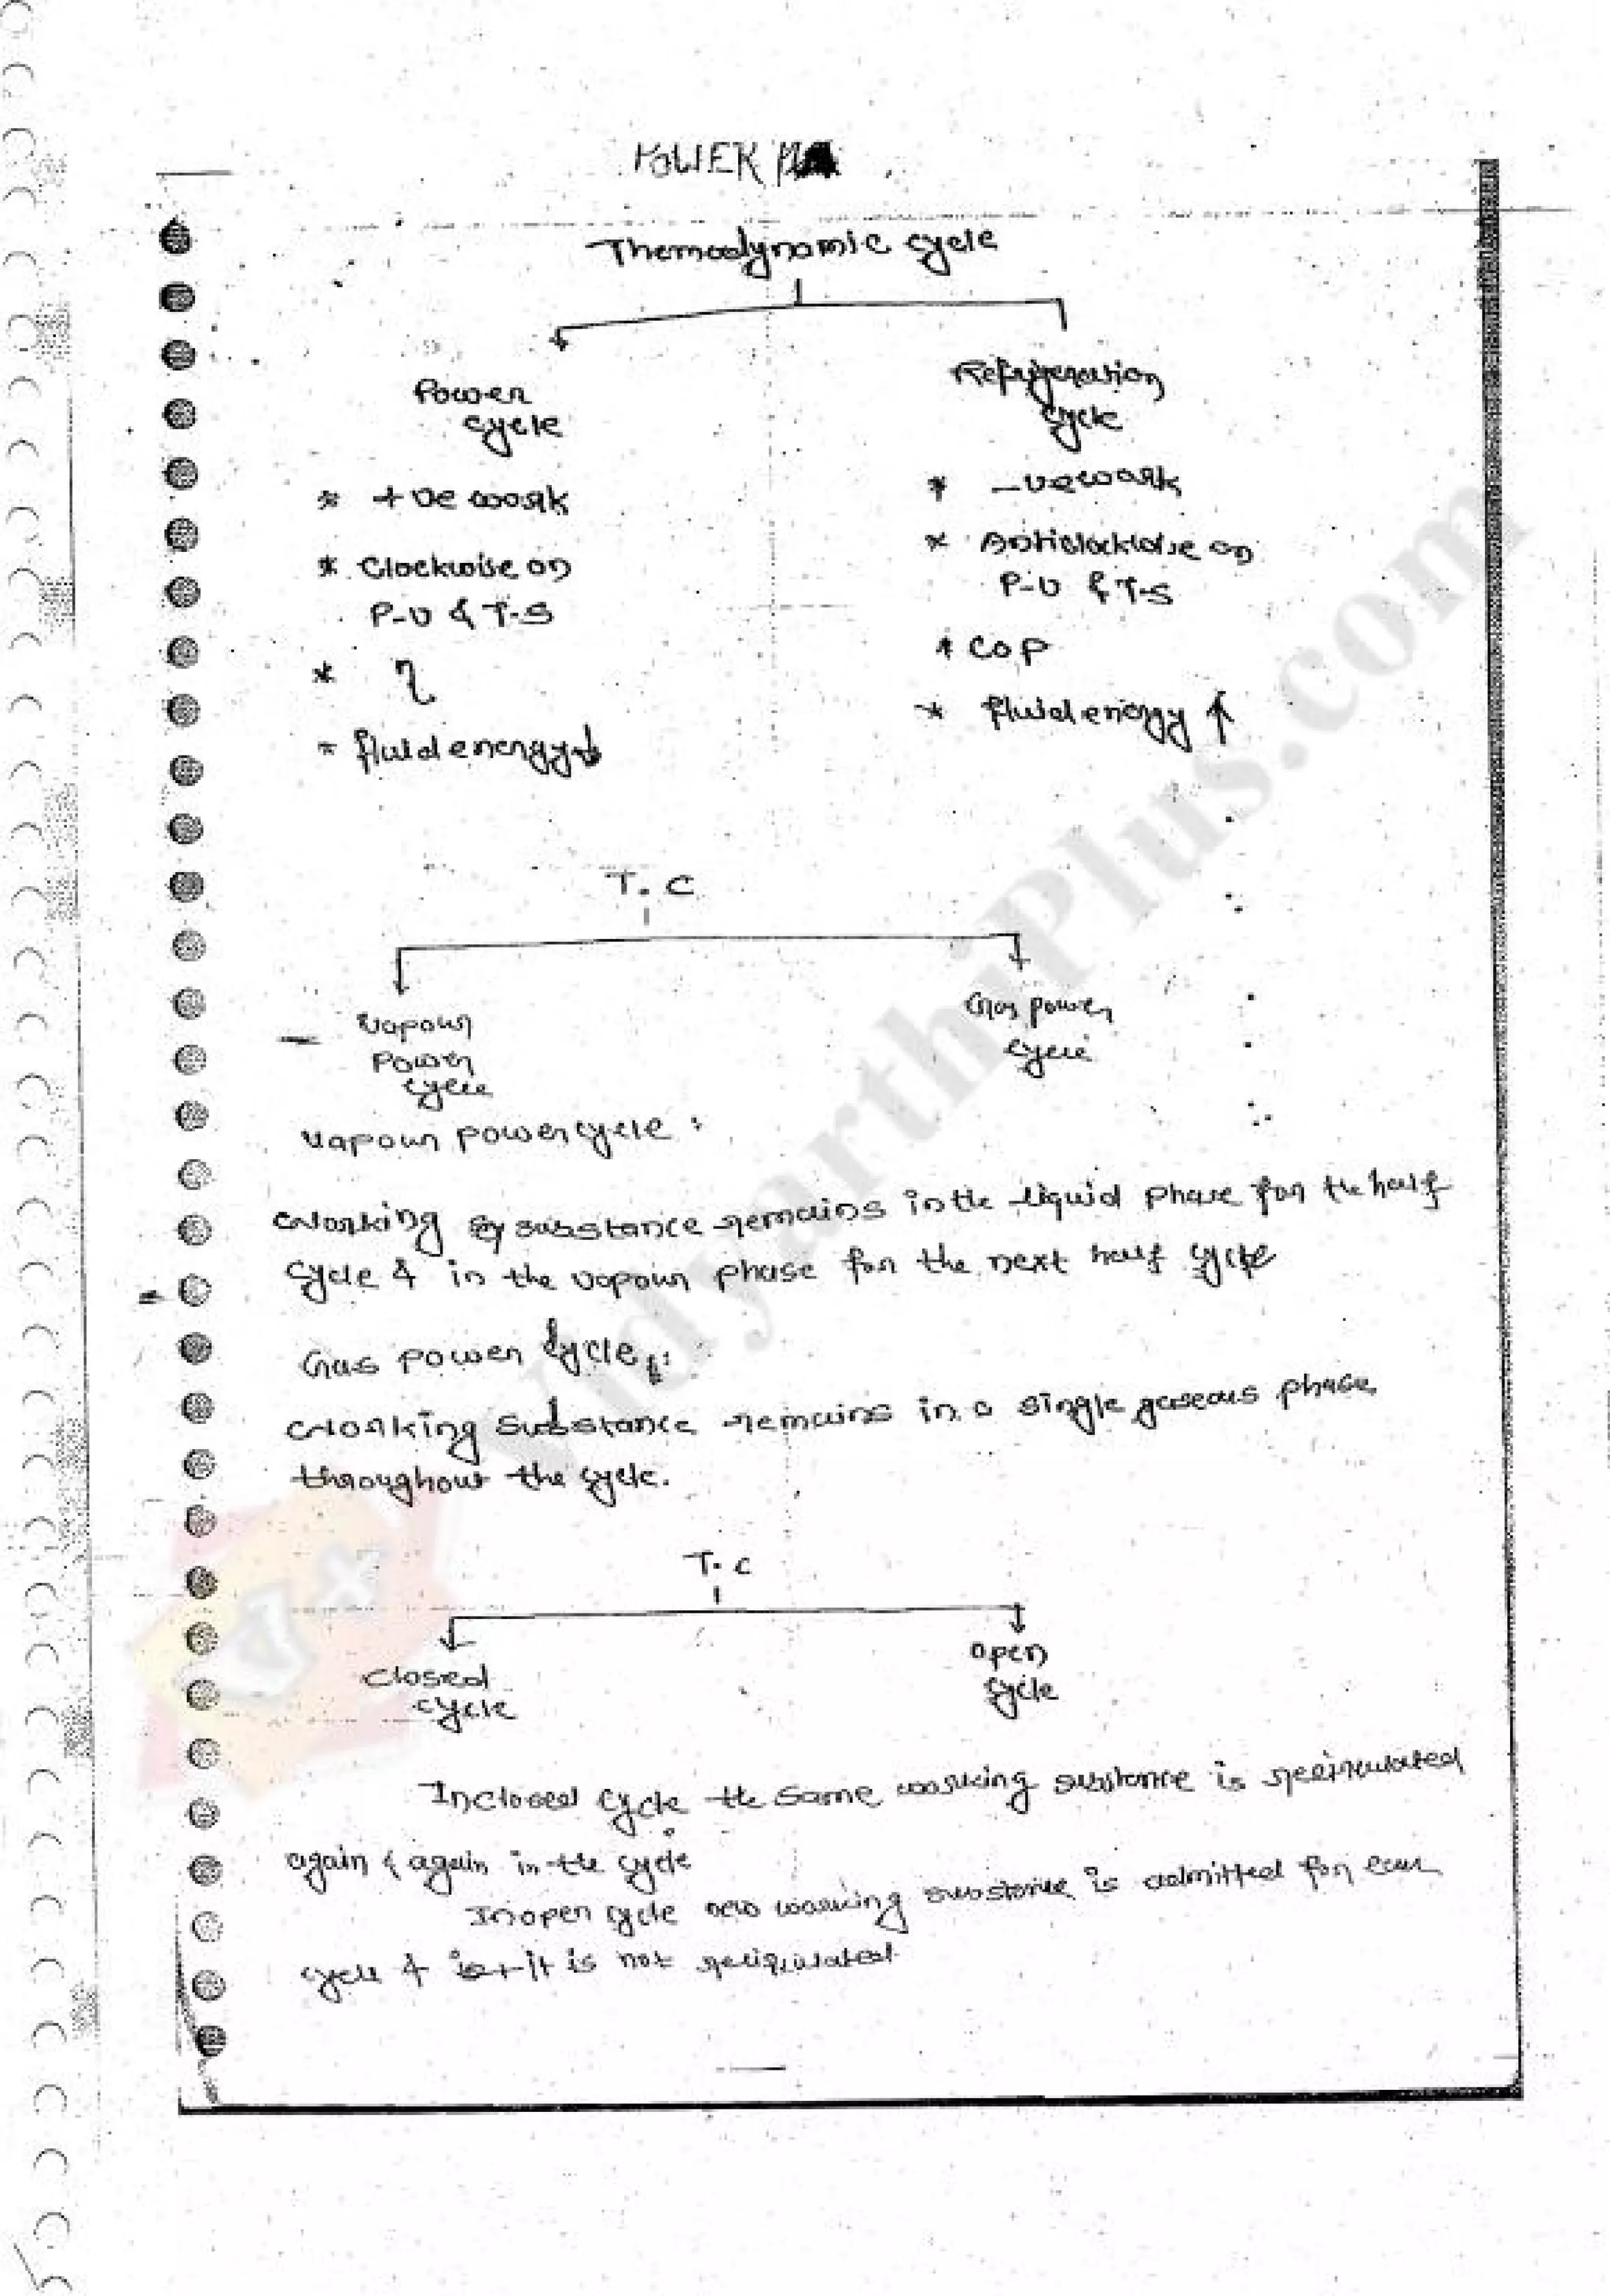 POWER
Themodynamic cycle
Power
cycle
Refrigeration
cycle
* +ve work
* -ve work
* Clockwise on
P-V & T-S
* Anticlockwise on
P-V & T-S
* η
* COP
* fluid energy ↓
* fluid energy ↑
T. C
Vapour
Power
cycle
Gas power
cycle
Vapour power cycle :
Working substance remains in the liquid phase for the half
cycle & in the vapour phase for the next half cycle
Gas power cycle :
Working substance remains in a single gaseous phase
throughout the cycle.
T. C
Closed
cycle
Open
cycle
In closed cycle the same working substance is recirculated
again & again in the cycle
In open cycle new working substance is admitted for each
cycle & it is not recirculated
VidyarthiPlus.com
V+